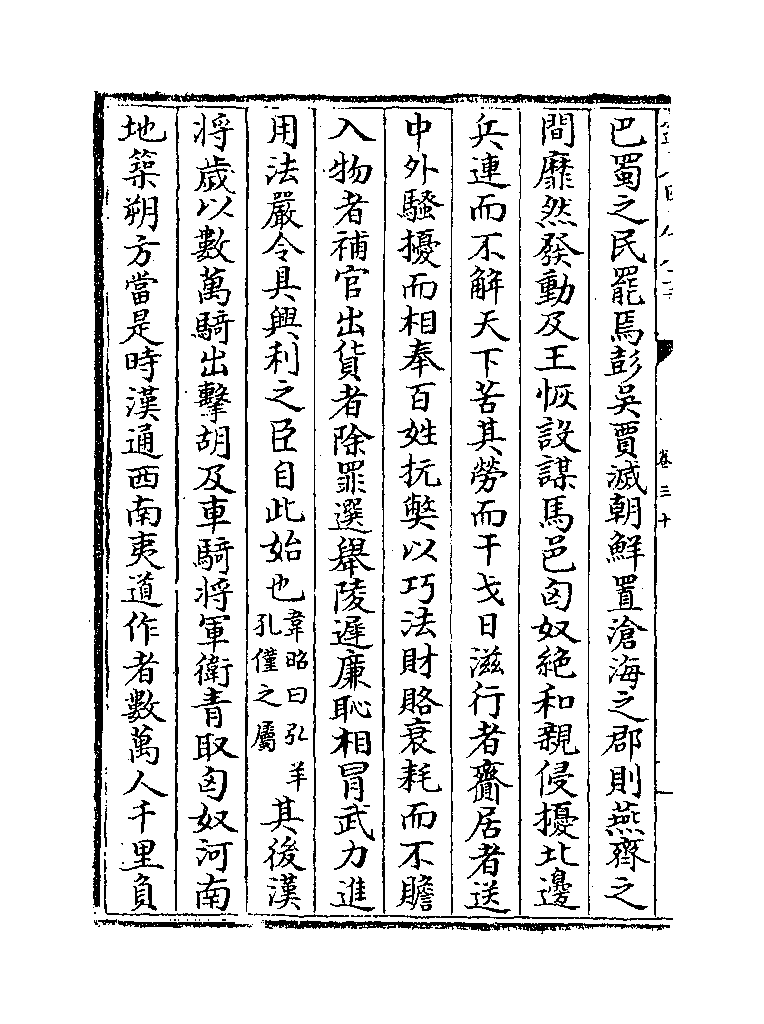 巴蜀之民罷焉彭吳賈滅朝鮮置滄海之郡則燕齊之
間靡然發動及王恢設謀馬邑匈奴絶和親侵擾北邊
兵連而不解天下苦其勞而干戈日滋行者齎居者送
中外騷擾而相奉百姓抏弊以巧法財賂衰耗而不贍
入物者補官出貨者除罪選舉陵遲廉恥相冒武力進
用法嚴令具興利之臣自此始也韋昭曰弘羊孔僅之屬其後漢
將歲以數萬騎出擊胡及車騎將軍衛青取匈奴河南
地築朔方當是時漢通西南夷道作者數萬人千里負
卷三十